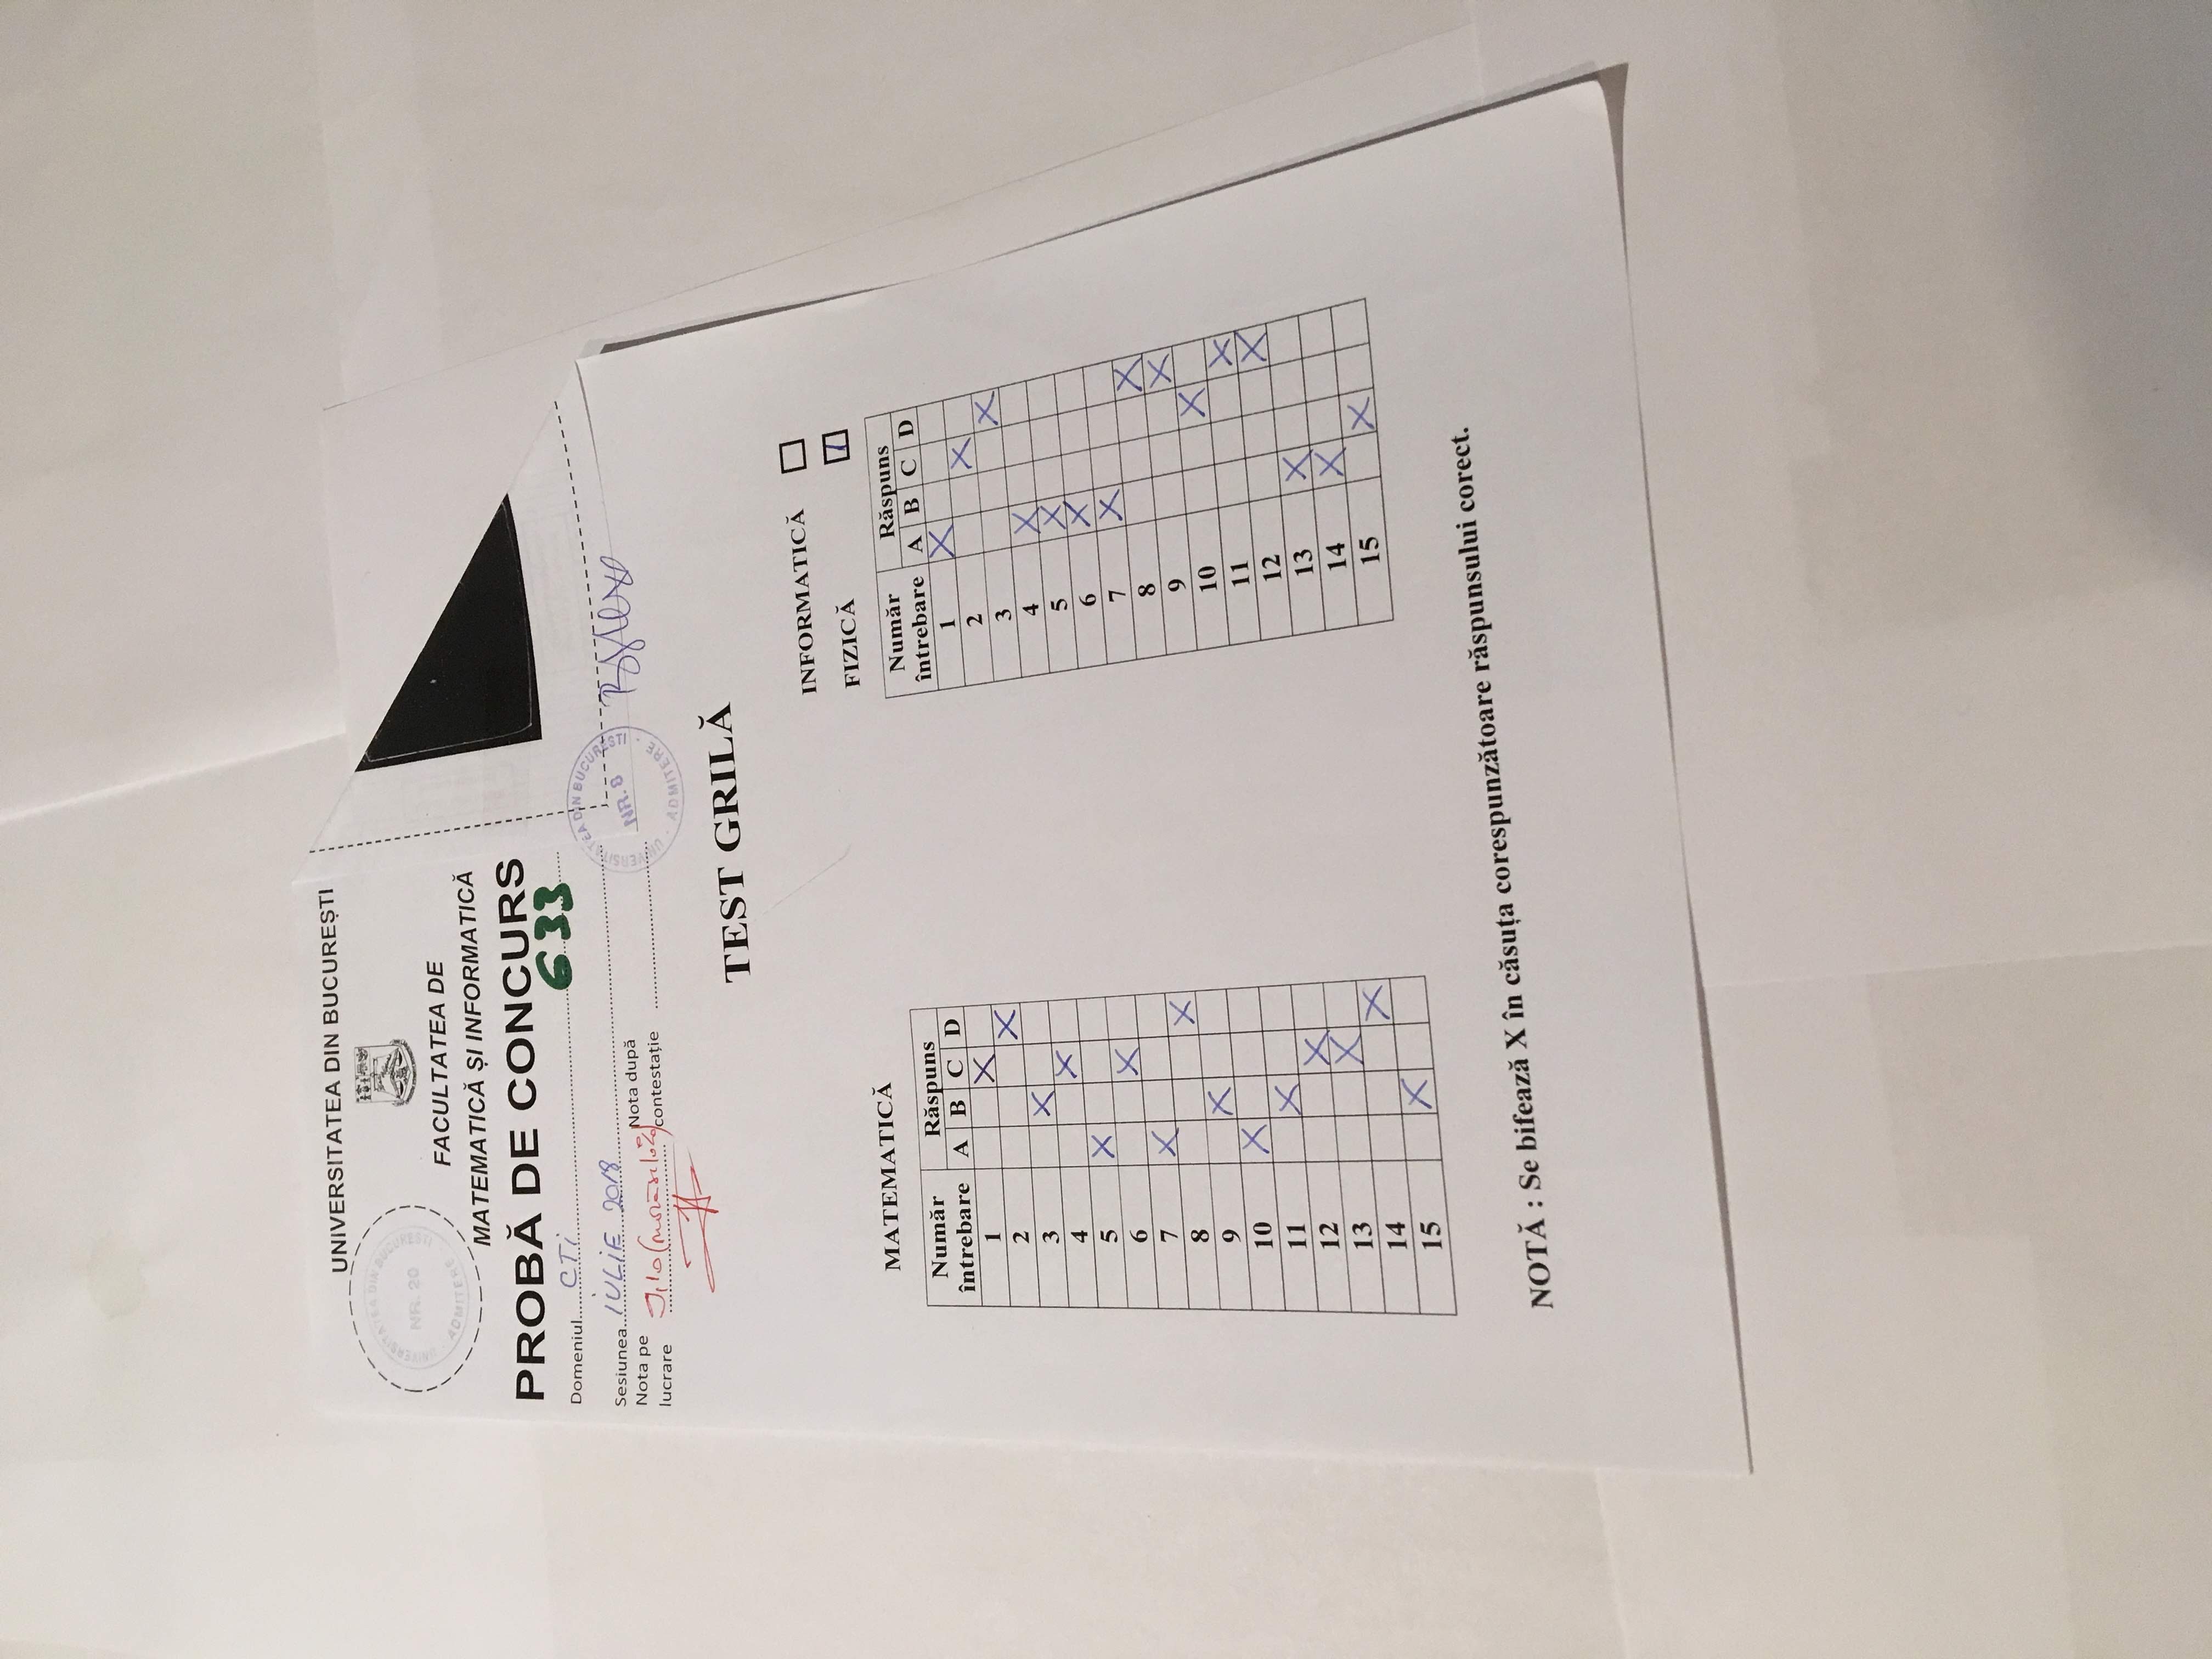 UNIVERSITATEA DIN BUCUREȘTI
UNIVERSITATEA DIN BUCUREȘTI
NR. 20
ADMITERE
FACULTATEA DE
MATEMATICĂ ȘI INFORMATICĂ
PROBĂ DE CONCURS
633
Domeniul CTi
Sesiunea IULIE 2018
Nota pe lucrare
Nota după contestație
UNIVERSITATEA DIN BUCUREȘTI
NR. 8
ADMITERE
TEST GRILĂ
INFORMATICĂ
FIZICĂ
MATEMATICĂ
Număr întrebare Răspuns
A B C D
1 X
2 X
3 X
4 X
5 X
6 X
7 X
8 X
9 X
10 X
11 X
12 X
13 X
14 X
15 X
Număr întrebare Răspuns
A B C D
1 X
2 X
3 X
4 X
5 X
6 X
7 X
8 X
9 X
10 X
11 X
12 X
13 X
14 X
15 X
NOTĂ : Se bifează X în căsuța corespunzătoare răspunsului corect.